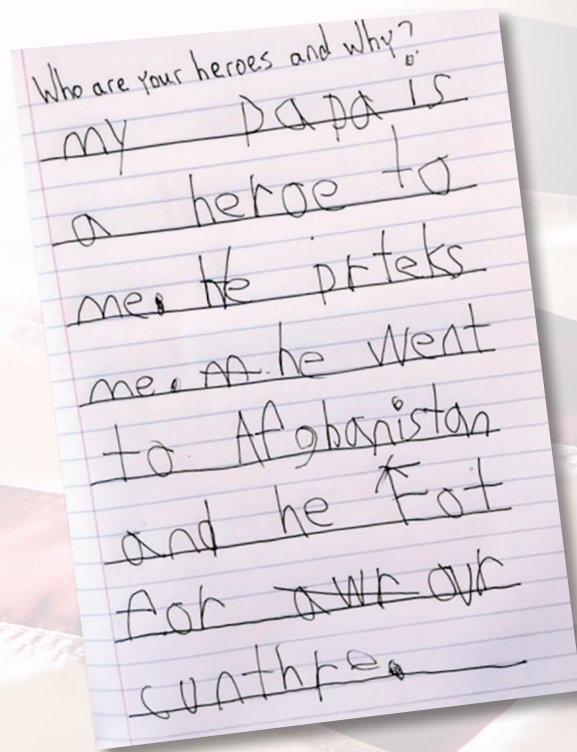 Who are your heroes and why?
my papa is
a heroe to
me. He prteks
me. he went
to Afghanistan
and he fot
for awr our
cunthre.